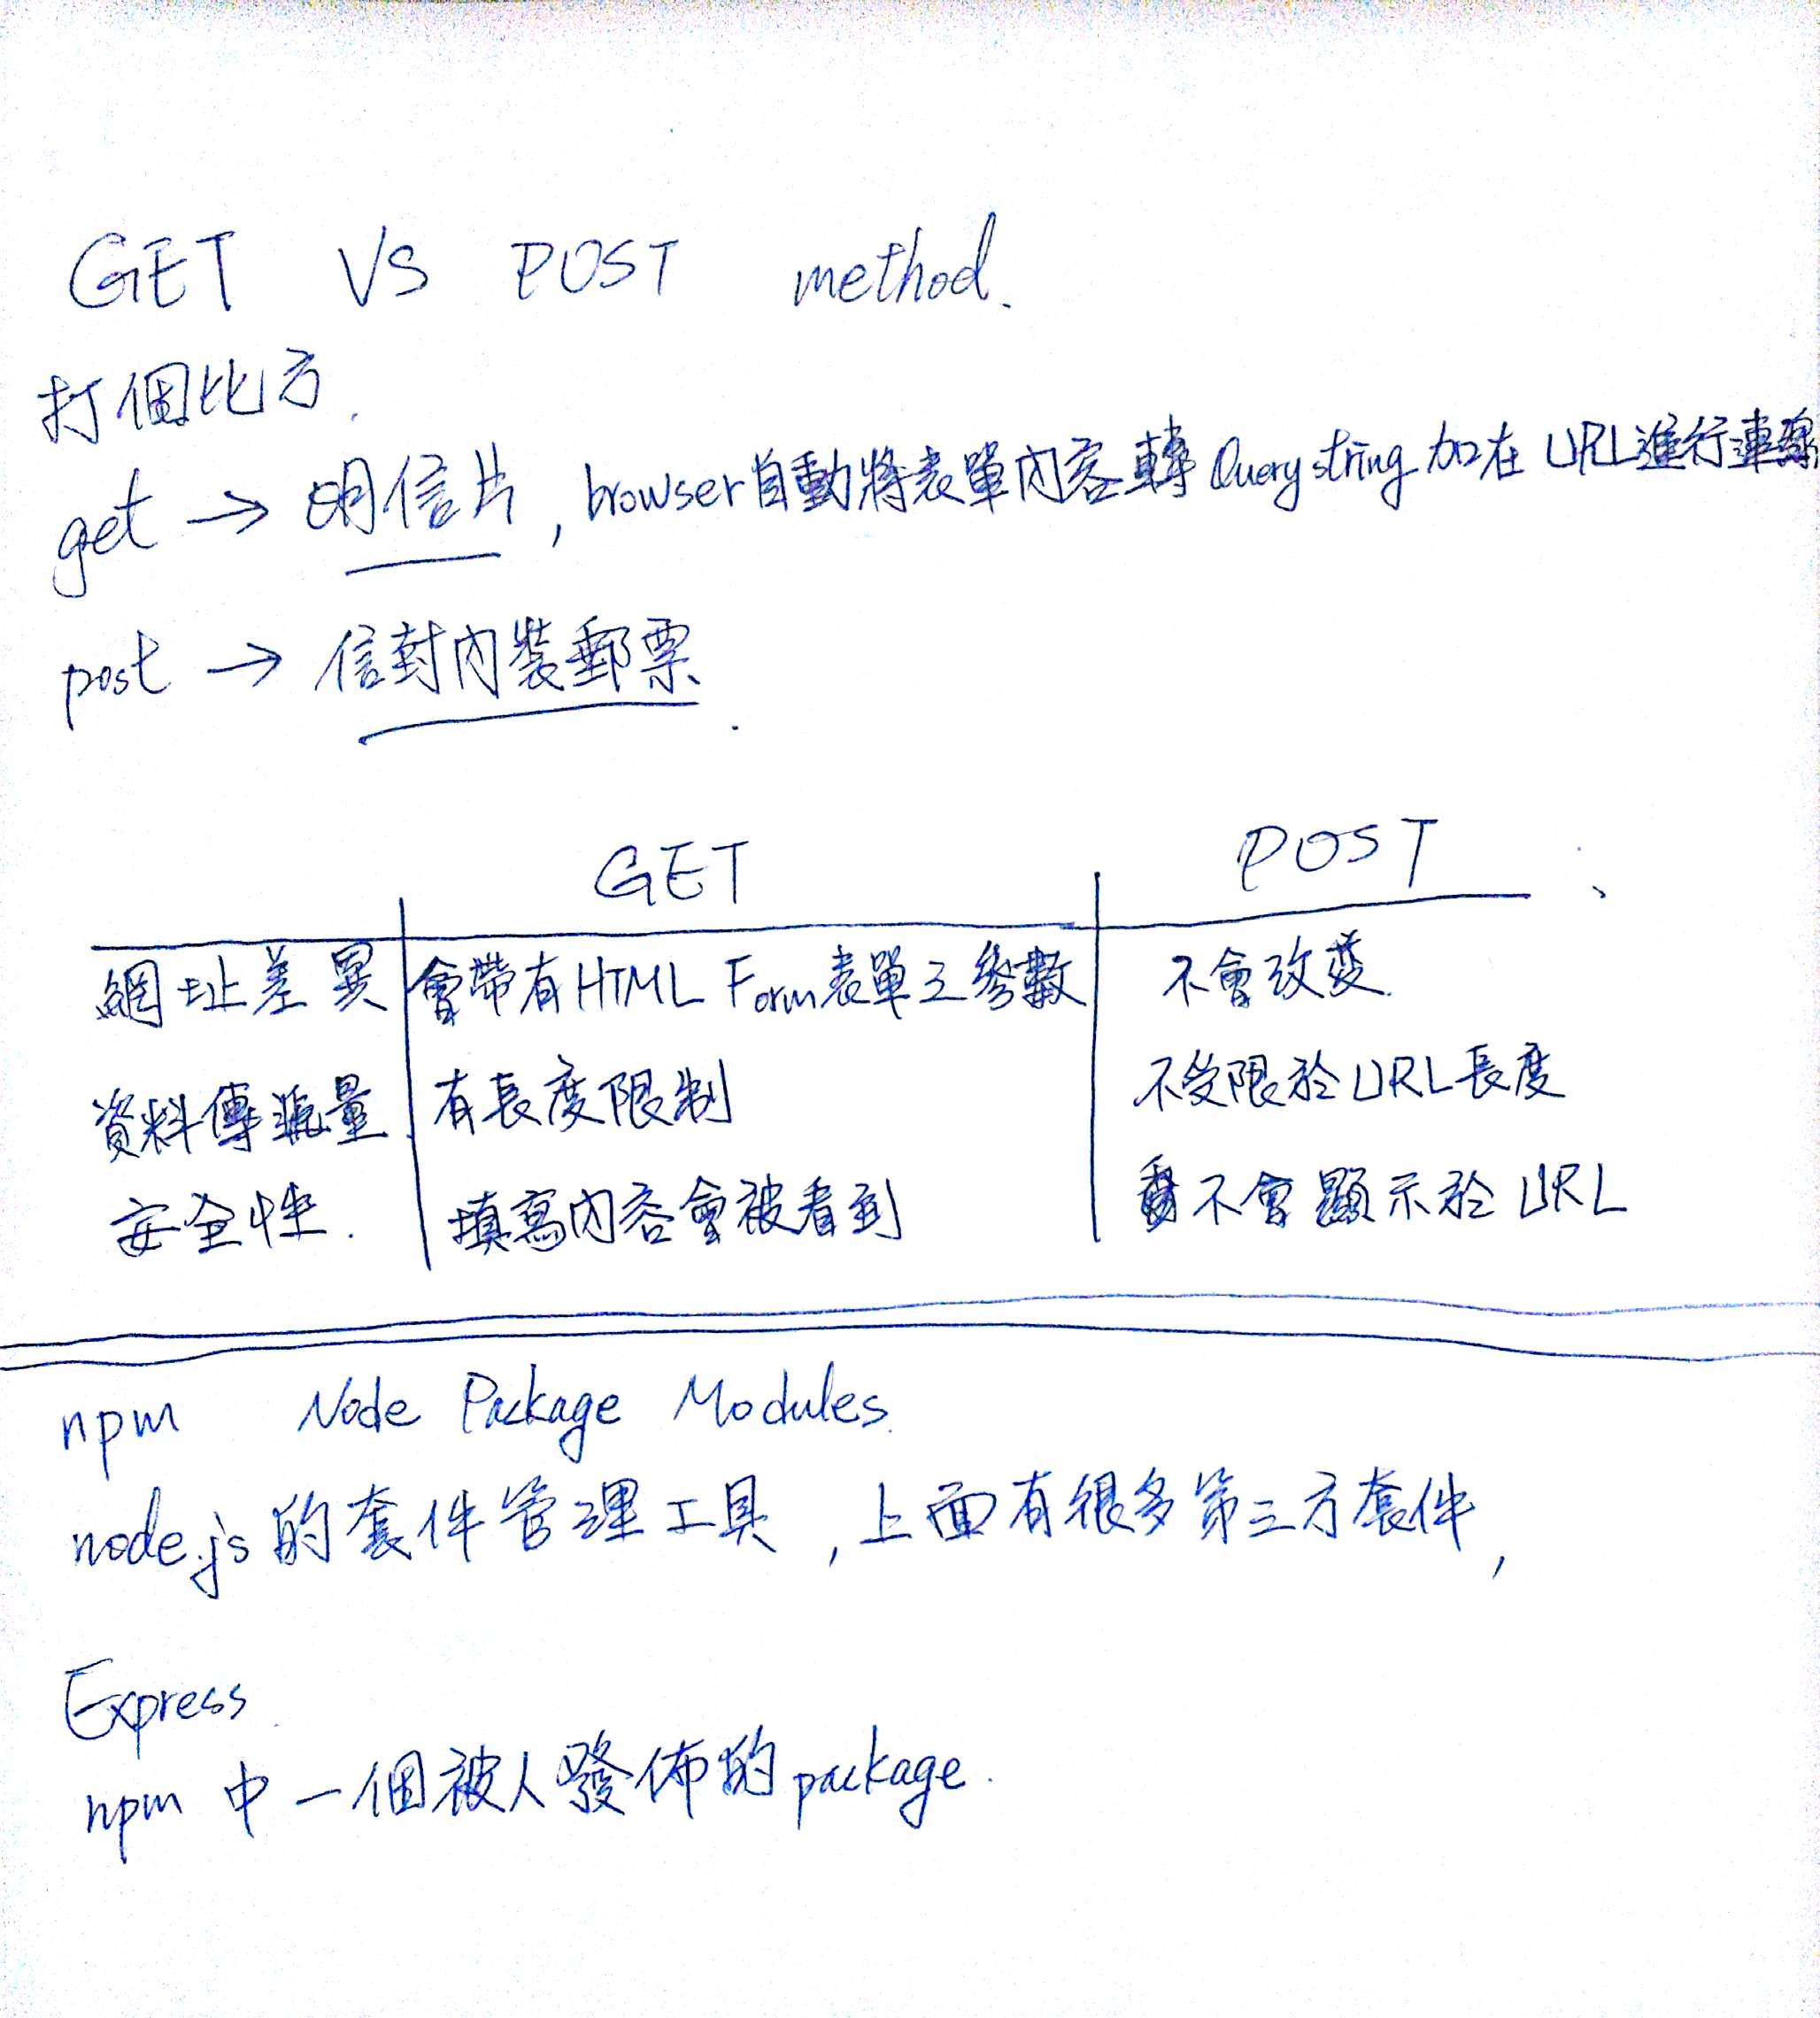 GET VS POST method.
打個比方.
get → 明信片, browser自動將表單內容轉 Query string 加在 URL進行連線
post → 信封內裝郵票.
GET POST
網址差異 會帶有HTML Form表單之參數 不會改變.
資料傳遞量 有長度限制 不受限於URL長度
安全性. 填寫內容會被看到 不會顯示於URL
npm Node Package Modules.
node.js的套件管理工具, 上面有很多第三方套件,
Express
npm 中一個被人發佈的 package.